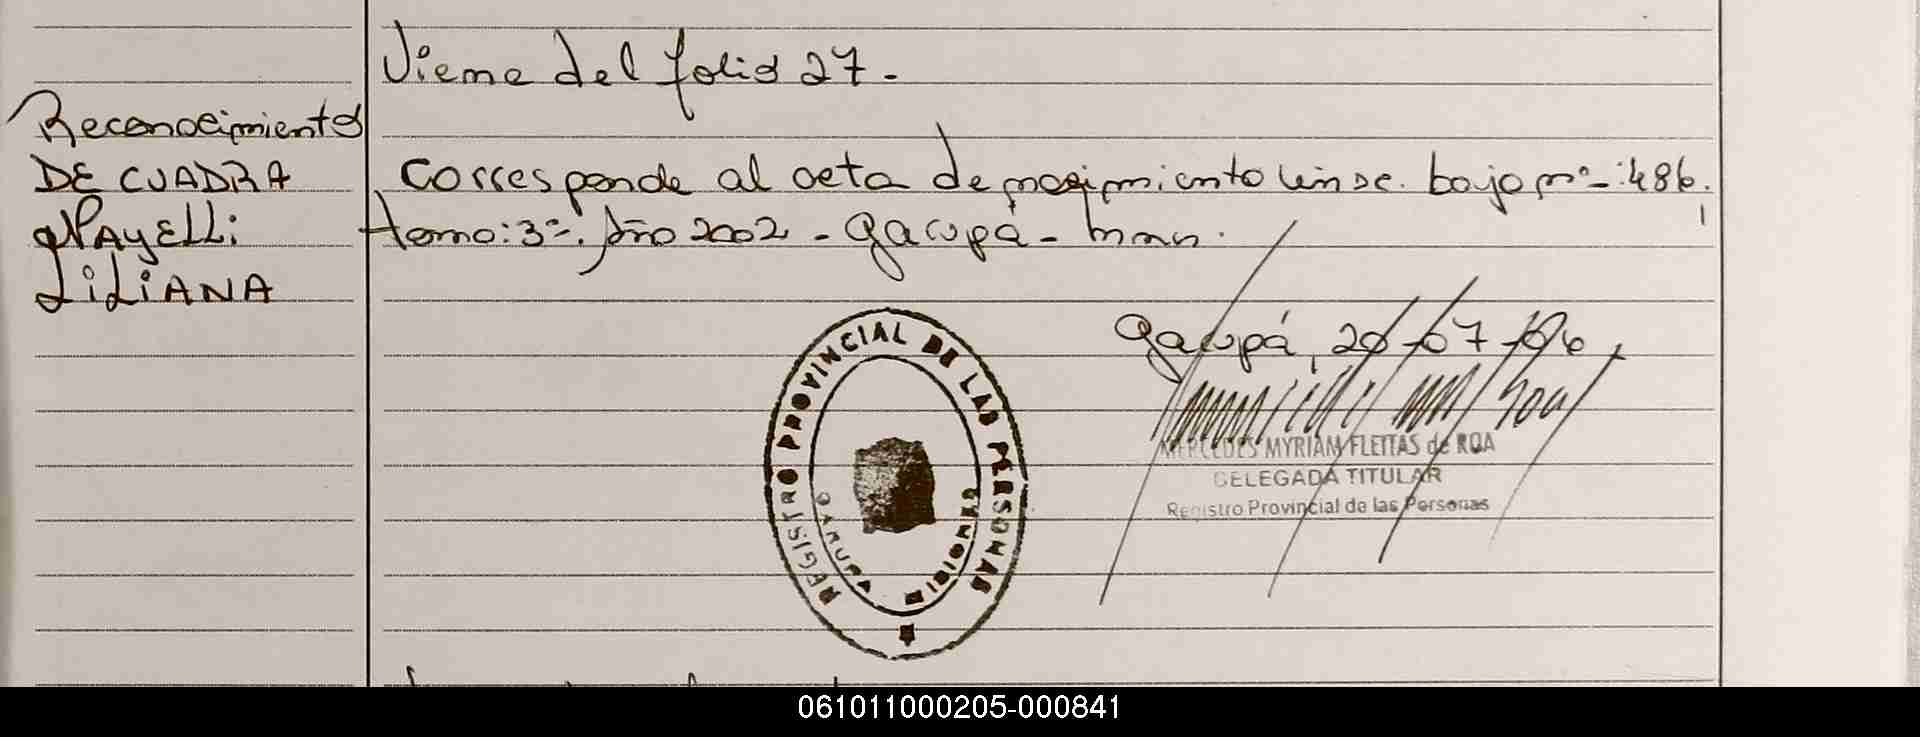 Viene del folio 27.-
Reconocimiento
DE CUADRA
NAYELLi
LiLiANA
Corresponde al acta de nacimiento binse. bajo nº-:486.
tomo:3º-. Año 2002 - Garupá - Mnes.
Garupá, 20-07-06,
REGISTRO PROVINCIAL DE LAS PERSONAS
GARUPA
MISIONES
MERCEDES MYRIAM FLEITAS de ROA
DELEGADA TITULAR
Registro Provincial de las Personas
061011000205-000841